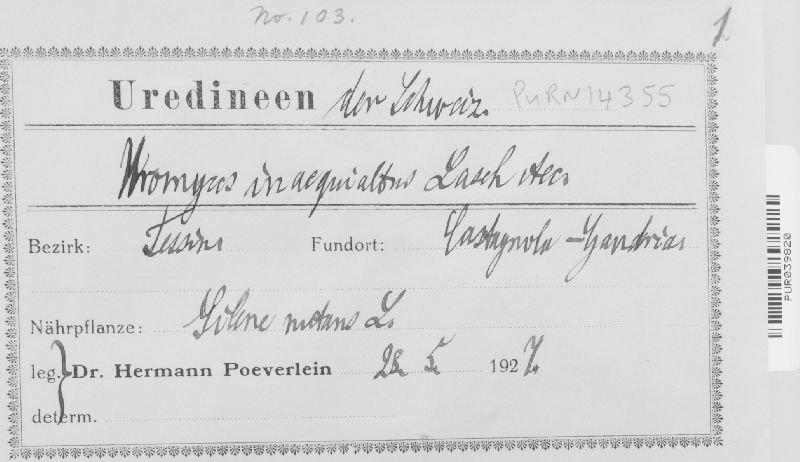 No. 103.
1
Uredineen der Schweiz. PURN14355
Uromyces inaequialtus Lasch Aec.
Bezirk: Tessin Fundort: Castagnola - Gandria
Nährpflanze: Silene nutans L.
leg. Dr. Hermann Poeverlein 28. 5. 1927.
determ.
PUR039820